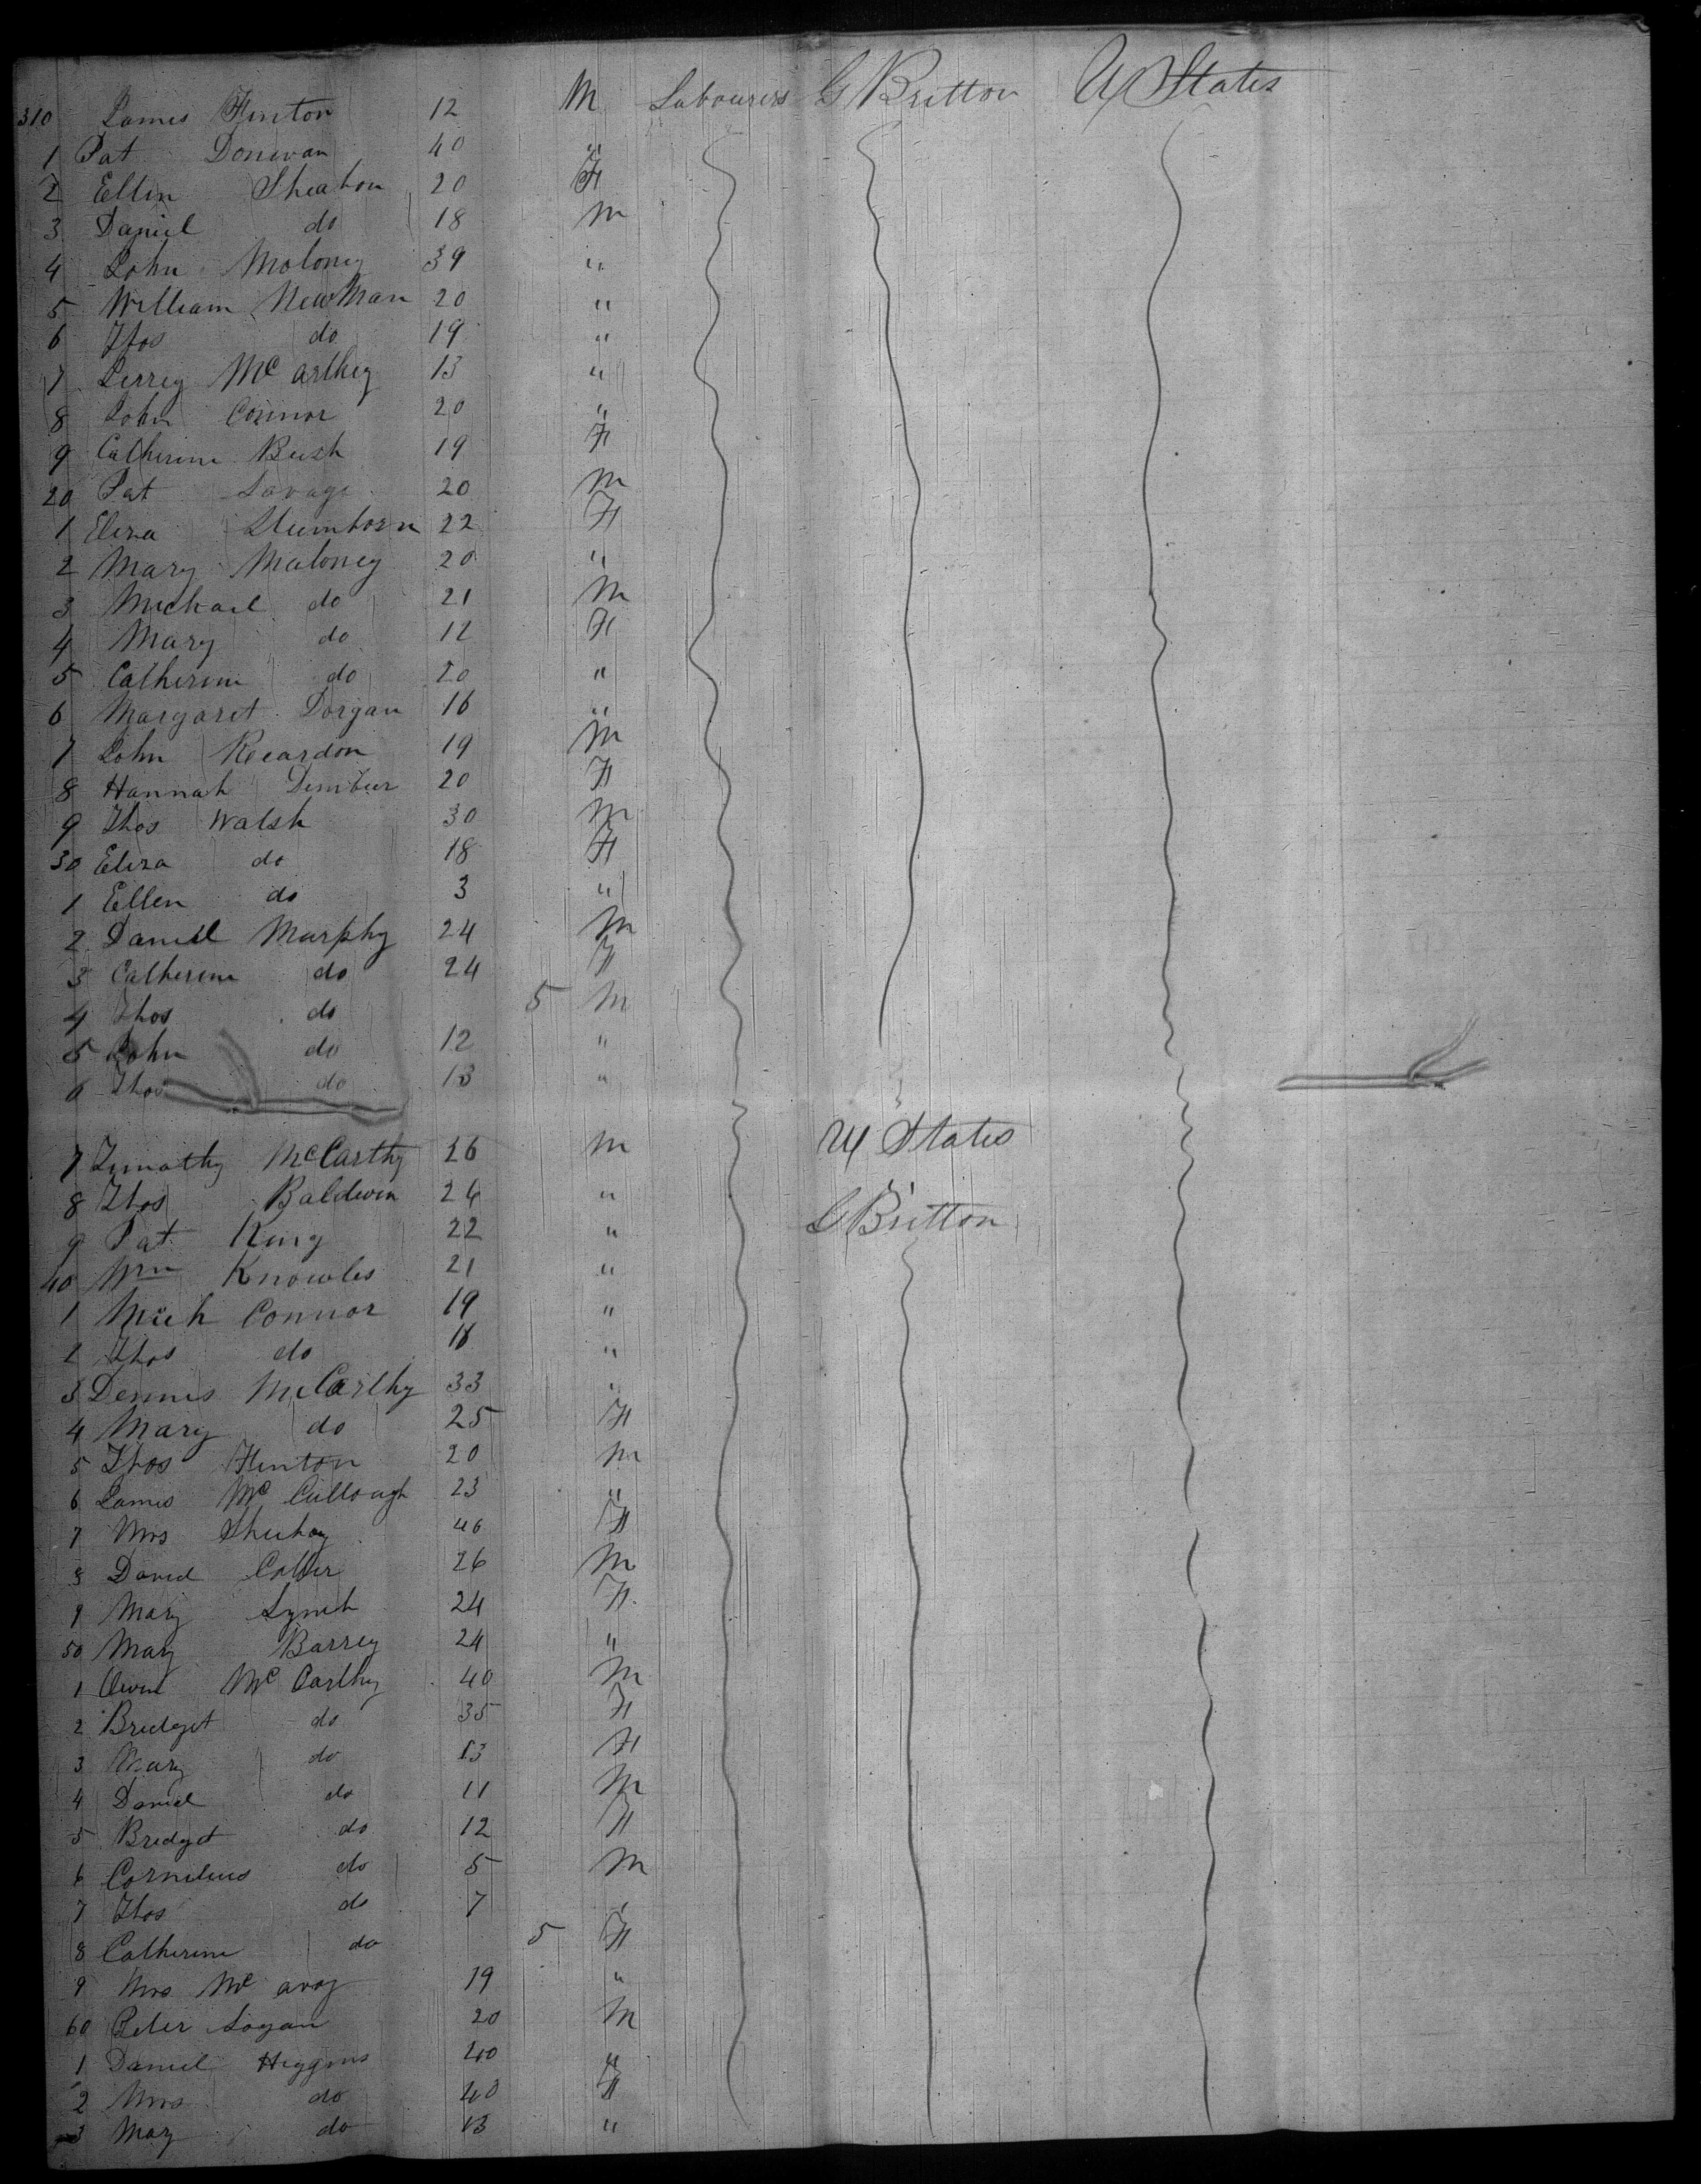 310 James Hinton 12 M Labourers G Britton U States
1 Pat Donevan 40 "
2 Ellen Sheahon 20 F
3 Daniel do 18 M
4 John Moloney 39 "
5 William NewMan 20 "
6 Thos do 19 "
7 Jerrey Mc arthey 13 "
8 John Connor 20 "
9 Catherine Bush 19 F
20 Pat Savage 20 M
1 Eliza 22 F
2 Mary Maloney 20 "
3 Michael do 21 M
4 Mary do 12 F
5 Catherine do 20 "
6 Margaret Dorgan 16 "
7 John Reeardon 19 M
8 Hannah 20 F
9 Thos Walsh 30 M
30 Eliza do 18 F
1 Ellen do 3 "
2 Daniel Murphy 24 M
3 Catherine do 24 F
4 Thos do 5 M
5 John do 12 "
6 Thos do 13 "
7 Timothy McCarthy 26 M U States
8 Thos Baldwin 26 " "
9 Pat King 22 " G Britton
40 Wm Knowles 21 "
1 Mich Connor 19 "
2 Thos do 18 "
3 Dennis McCarthy 33 "
4 Mary do 25 F
5 Thos Hinton 20 M
6 James Mc Cullough 23 "
7 Mrs Sheehay 46 F
8 David 26 M
9 Mary Lynch 24 F
50 Mary Barrey 24 "
1 Owen Mc Carthy 40 M
2 Bridget do 35 F
3 Mary do 13 F
4 Daniel do 11 M
5 Bridget do 12 F
6 Cornelius do 5 M
7 Thos do 7 "
8 Catherine do 5 F
9 Mrs Mc avoy 19 "
60 Peter Logan 20 M
1 Daniel Higgins 40 "
2 Mrs do 40 F
3 May do 13 "